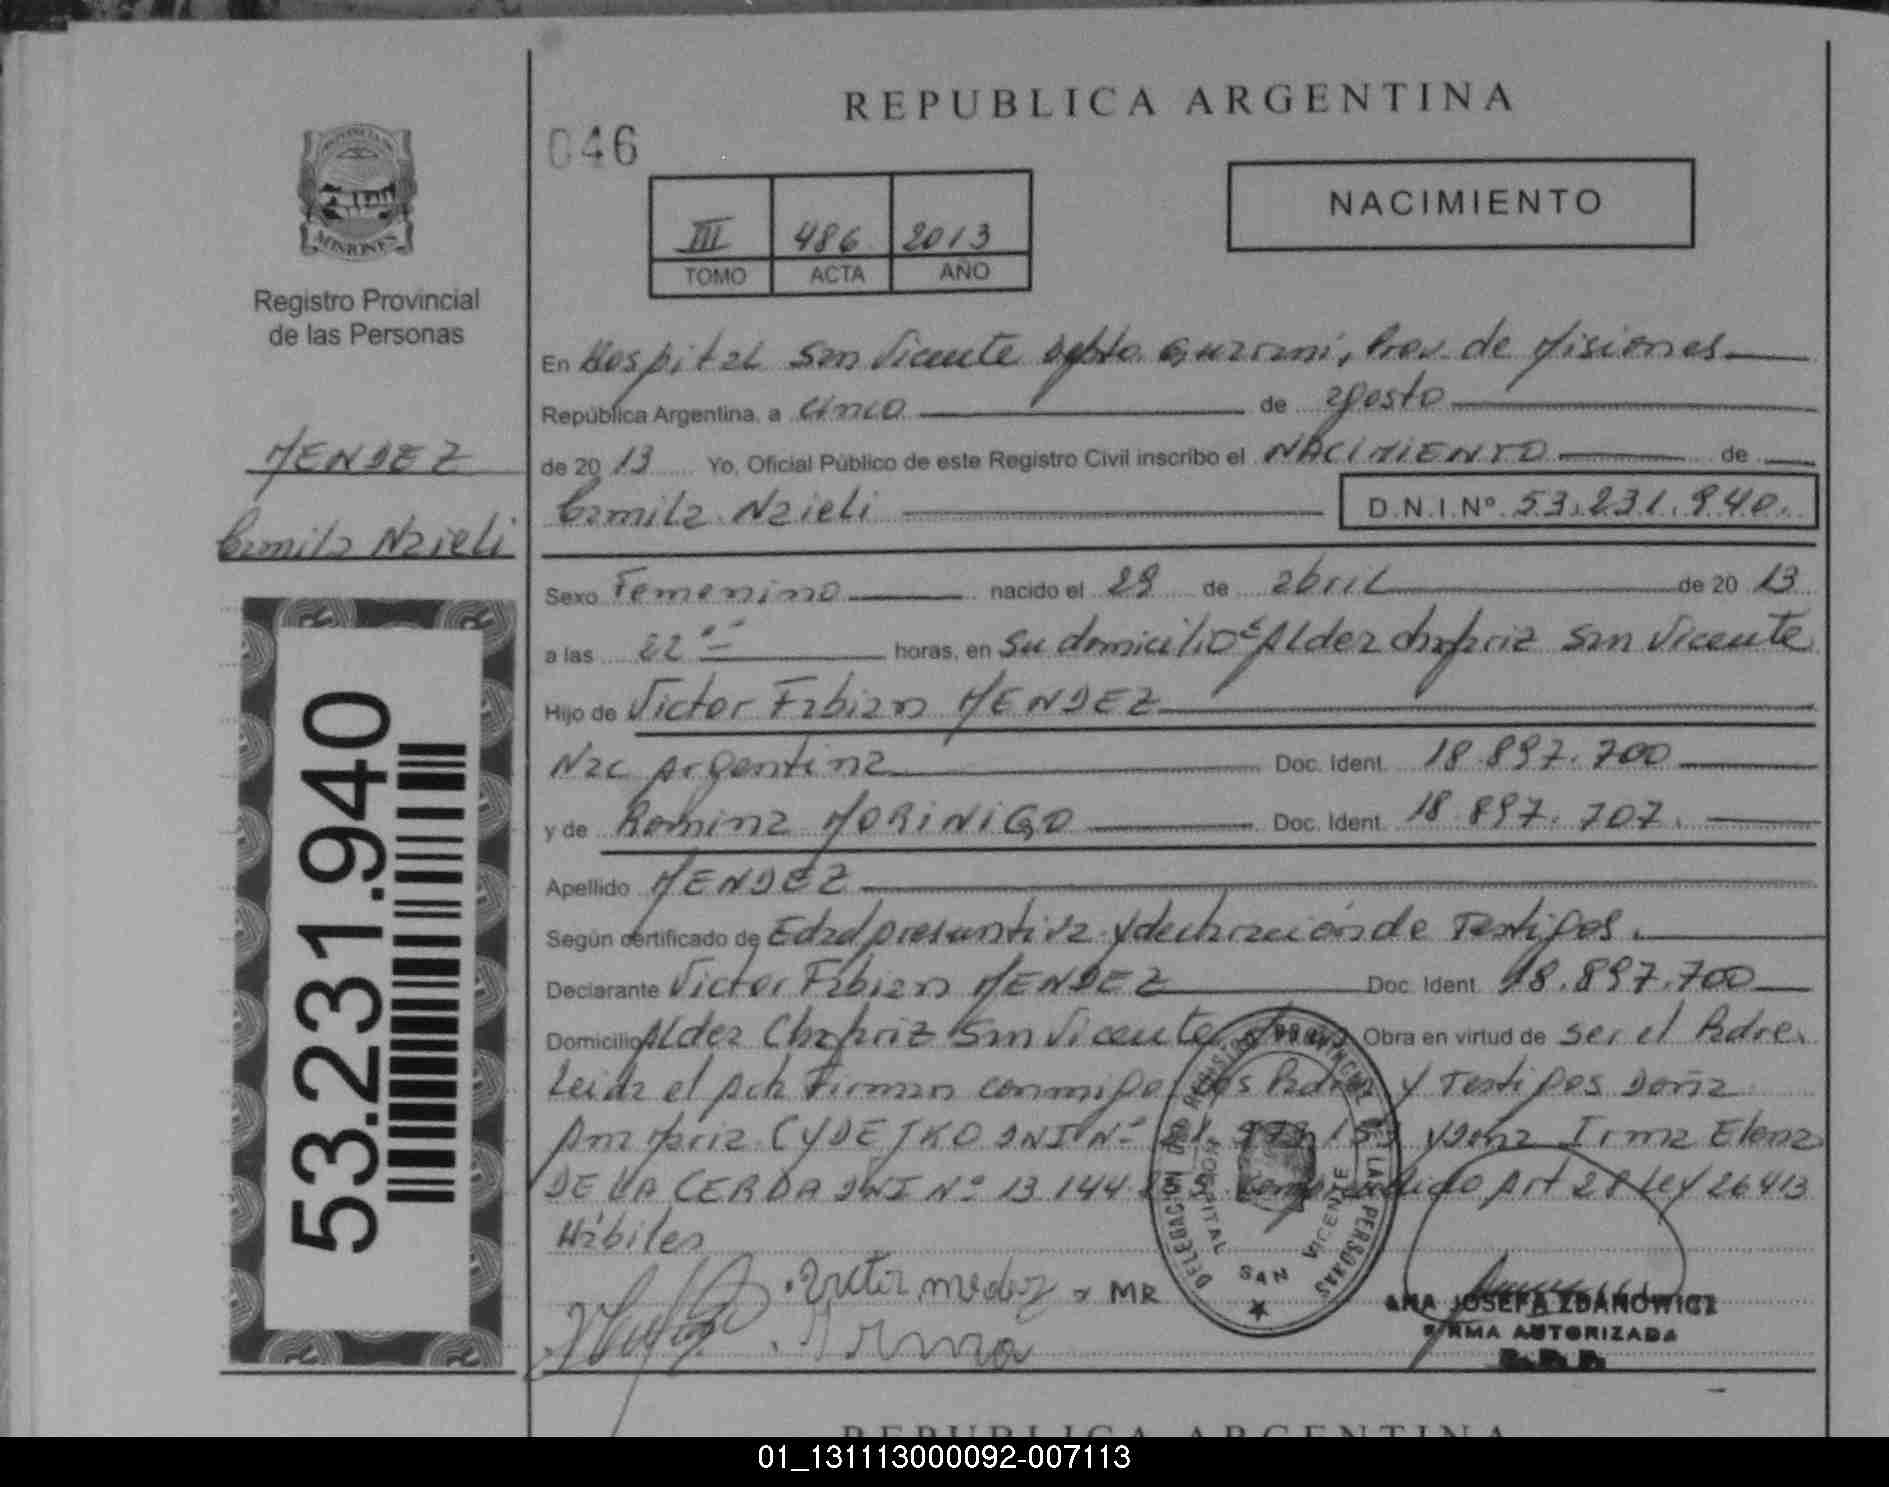 REPUBLICA ARGENTINA
046
PROVINCIA DE
MISIONES
Registro Provincial
de las Personas
III 486 2013
TOMO ACTA AÑO
NACIMIENTO
En Hospital San Vicente Dpto Guarani, Prov. de Misiones
República Argentina, a cinco de agosto
de 2013 Yo, Oficial Público de este Registro Civil inscribo el NACIMIENTO de
Camila Naieli D.N.I.Nº 53.231.940.
MENDEZ
Camila Naieli
53.231.940
Sexo Femenino nacido el 29 de abril de 2013
a las 22 horas, en su domicilio Aldea Chapria San Vicente
Hijo de Victor Fabian MENDEZ
Nac Argentina Doc. Ident. 18.897.700
y de Romina MORINIGO Doc. Ident. 18.897.707.
Apellido MENDEZ
Según certificado de Edad presuntiva y declaración de Testigos.
Declarante Victor Fabian MENDEZ Doc. Ident. 18.897.700
Domicilio Aldea Chapria San Vicente Obra en virtud de ser el Padre.
Leida el Acta Firman conmigo los Padres y Testigos Doña
Ana Maria CYDEJKO DNI Nº y Doña Irma Elena
DE LA CERDA DNI Nº 13.144 Art 28 Ley 26413
Hábiles
Victor mendez MR
Irma
DELEGACION DEL REGISTRO PROVINCIAL DE LAS PERSONAS
HOSPITAL SAN VICENTE
ANA JOSEFA ZDANOWICZ
FIRMA AUTORIZADA
R.P.P.
REPUBLICA ARGENTINA
01_131113000092-007113